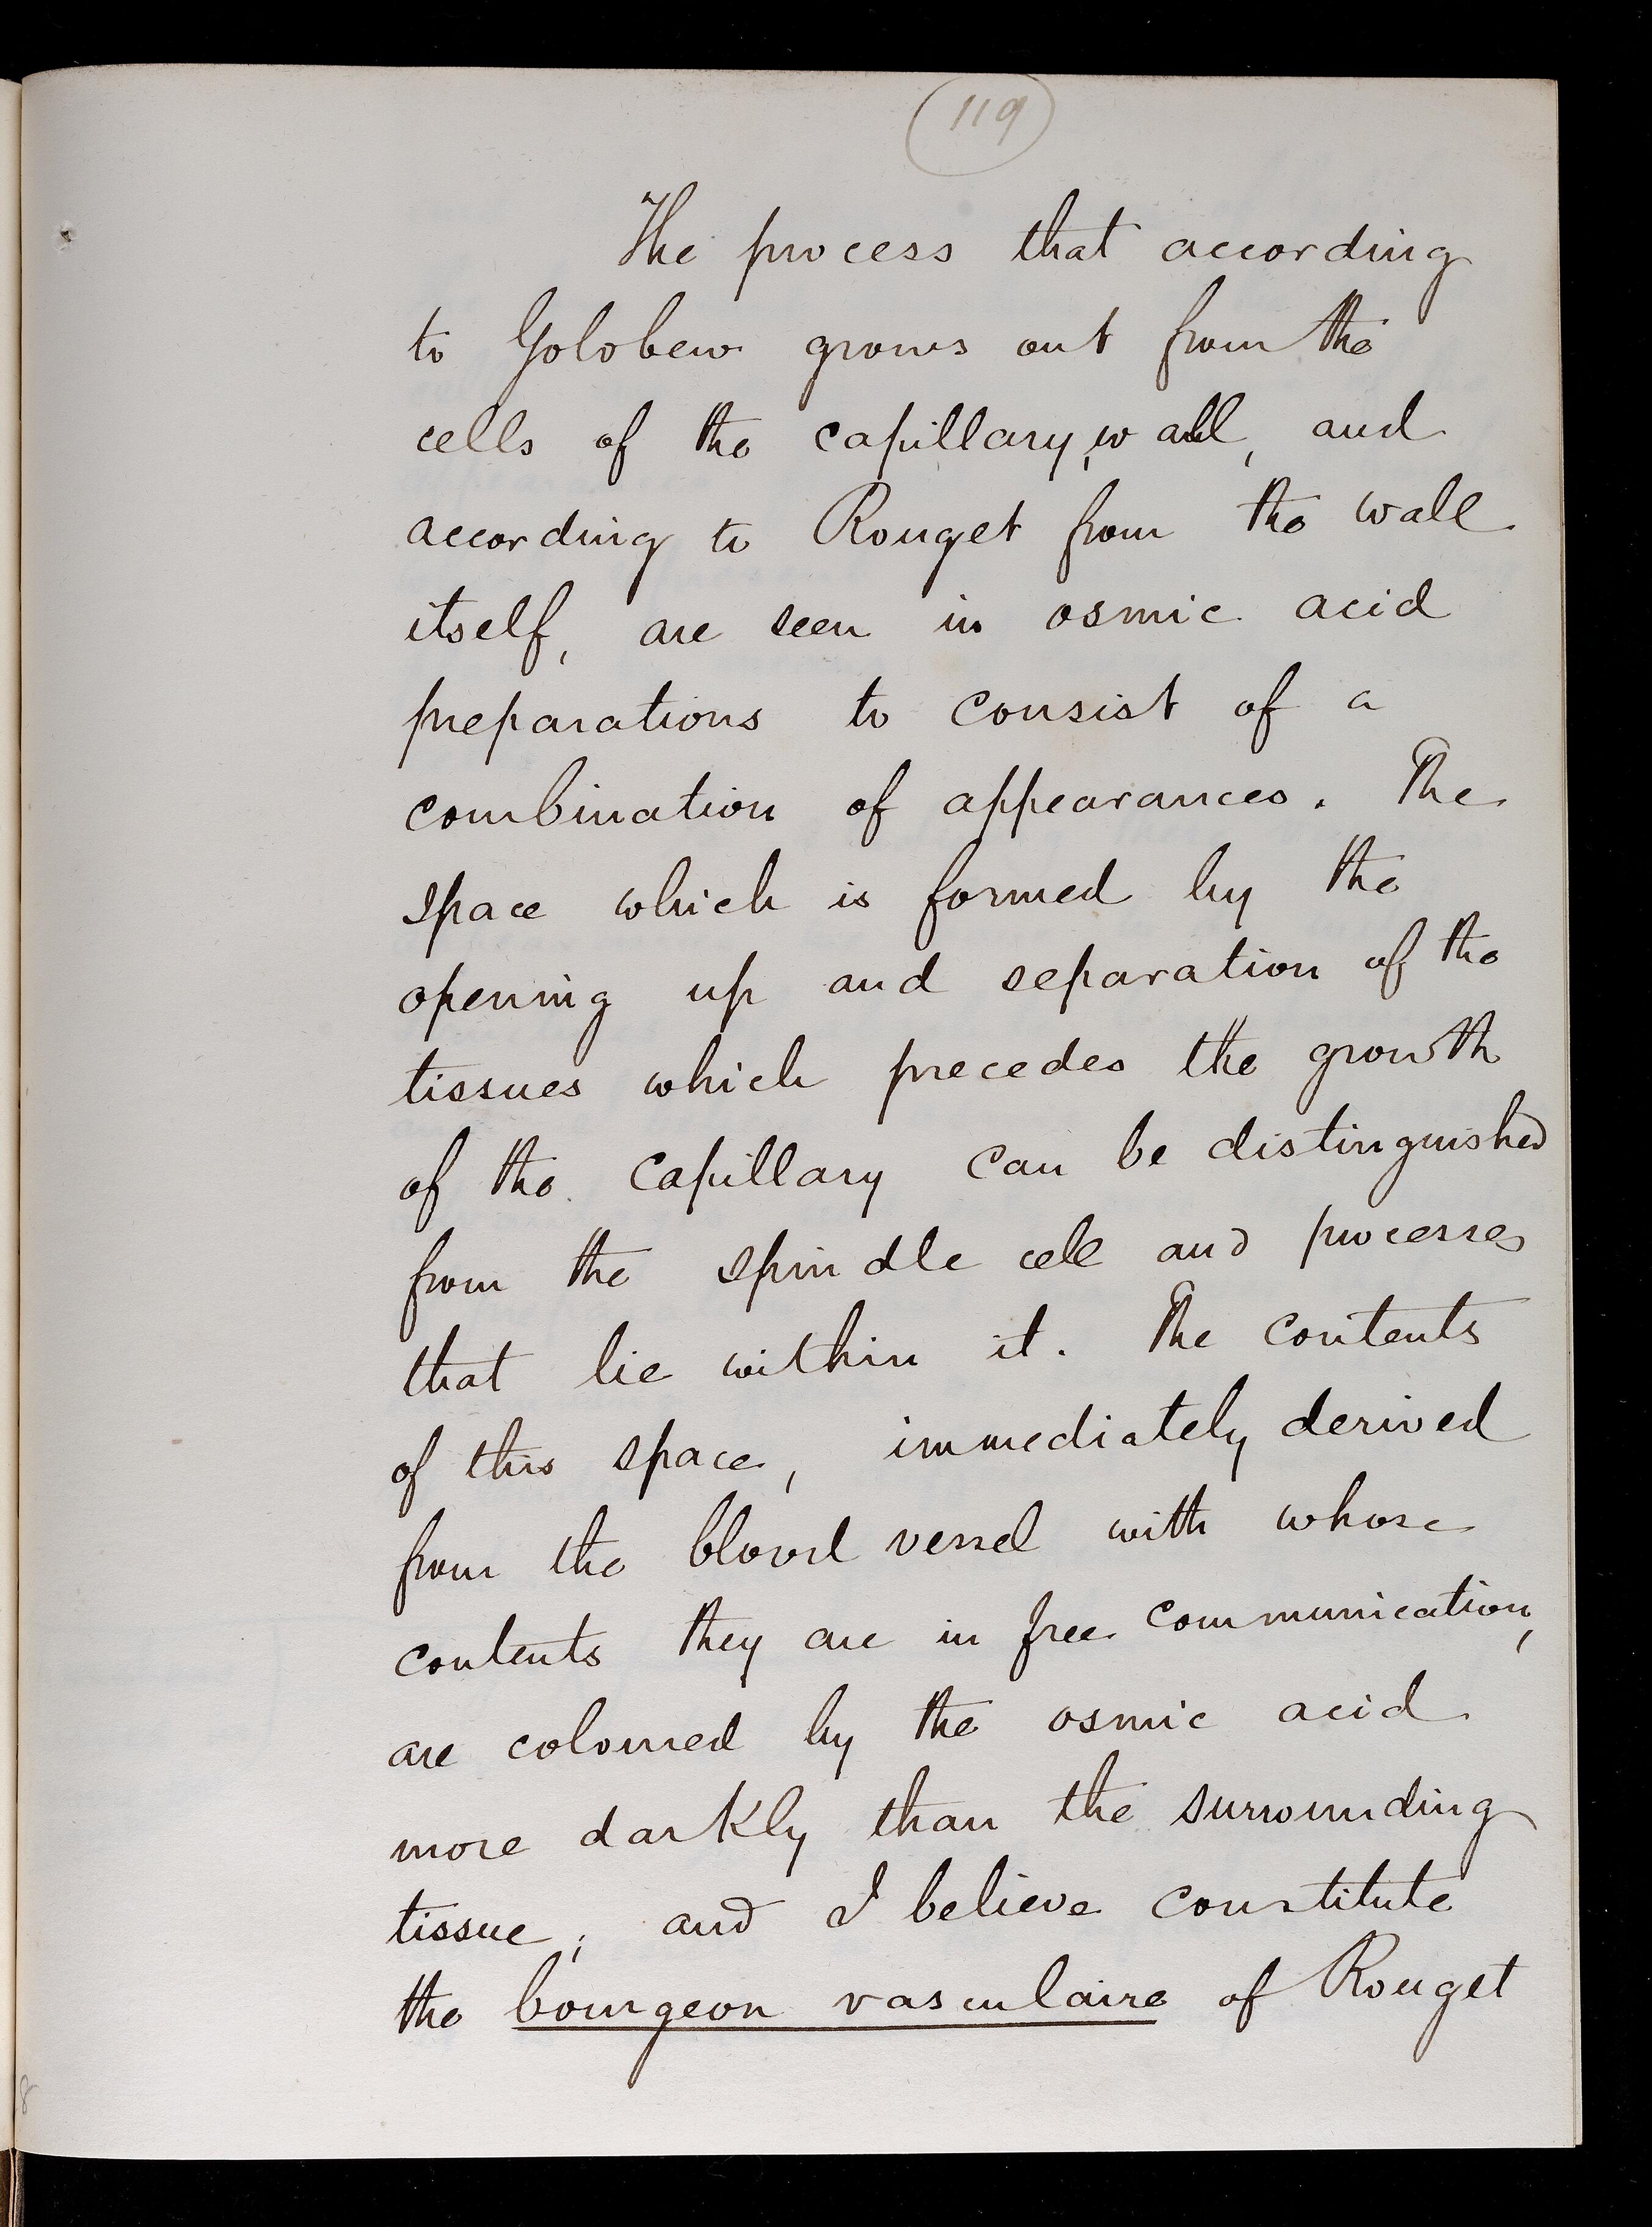 119
The process that according
to Golobew grows out from the
cells of the capillary, wall, and
according to Rouget from the wall
itself, are seen in osmic acid
preparations to consist of a
combination of appearances. The
space which is formed by the
opening up and separation of the
tissues which precedes the growth
of the capillary can be distinguished
from the spindle cell and processes
that lie within it. The contents
of this space, immediately derived
from the blood vessel with whose
contents they are in free communication,
are coloured by the osmic acid
more darkly than the surrounding
tissue; and I believe constitute
the bourgeon vasculaire of Rouget